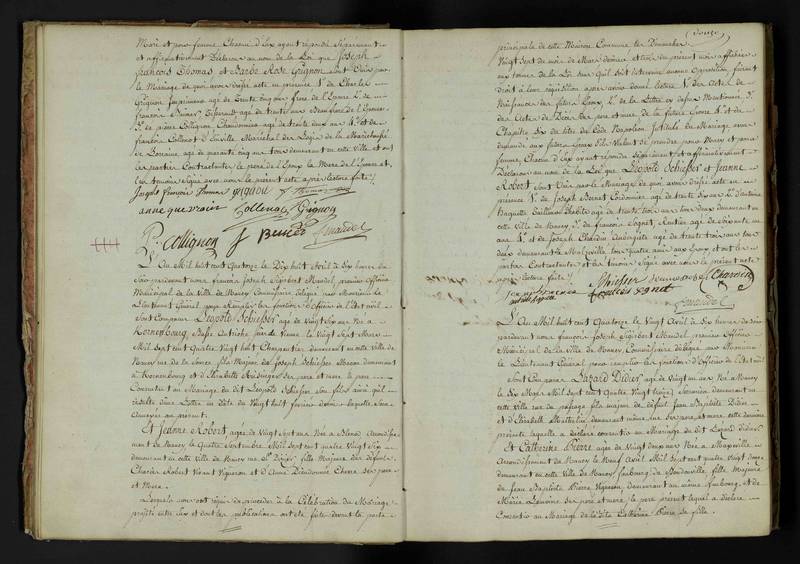 Mari et pour femme Chacun d'Eux ayant répondu Séparément
et affirmativement Déclarons au nom de la Loi que Joseph
françois Thomas et Barbe Rose Grignon sont Unis par
le Mariage de quoi avons dressé acte en présence 1.° de Charles
Grignon Imprimeur agé de trente cinq ans frère de l'Epouse 2.° de
françois
3.° de pierre Collignon agé de trente deux ans 4.° et de
françois Maréchal des Logis de la Maréchaussée
de Lorraine, agé de quarante cinq ans tous demeurant en cette Ville et ont
les parties Contractantes le père de l'Epoux la Mère de l'Epouse et
les témoins Signé avec nous le présent acte après lecture faite /.
Joseph françois Thomas grignon f thomas
anne quevrain Collenot Grignon
P. Collignon Mandel
L'An Mil huit cent Quatorze le Dix huit Avril à Six heures du
Soir pardevant nous françois Joseph Sigisbert Mandel, premier Officier
Municipal de la Ville de Nancy Commissaire délégué par Monsieur le
Lieutenant Général pour Remplir les fonctions d'Officier de l'Etat civil
Sont Comparus Leopold Schiesser agé de Vingt Six ans Né à
Kornenbourg Basse Autriche près de Vienne le Vingt Sept
Mil Sept cent Quatre Vingt huit Charpentier demeurant en cette Ville de
Nancy rue de la Source fils Majeur de Joseph Schiesser Macon demeurant
à Kornenbourg et d'Elisabeth ses père et mère le père
Consentant au Mariage du dit Leopold Schiesser son fils ainsi qu'il
résulte d'une Lettre en date du Vingt huit février dernier laquelle sera
Annexée au présent.
Et Jeanne Robert agée de Vingt Sept ans Née à
de Nancy le Quatre Septembre Mil Sept cent quatre Vingt Six
demeurant en cette Ville de Nancy rue St Dizier fille Majeure des défunts
Charles Robert Vivant Vigneron et d'Anne Dieudonnée ses père
et Mere.
Lesquels nous ont requis de procéder à la Célébration du Mariage
projetté entre eux et dont les publications ont été faites devant la porte
(Douze)
principale de cette Maison Commune les Dimanches
Vingt Sept du mois de Mars dernier et trois du présent mois affichées
aux termes de la Loi sur Quoi ne nous étant intervenu aucune Opposition faisant
droit à leur réquisition après avoir donné lecture 1.° des Actes de
Naissance des futurs Epoux 2.° de la Lettre ci dessus Mentionnée 3.°
des Actes de Décès des père et mère de la future Epouse 4.° et du
Chapitre Six du titre du Code Napoléon Intitulé du Mariage avons
demandé aux futurs Epoux s'ils Veulent se prendre pour Mari et pour
femme, Chacun d'Eux ayant répondu Séparément et affirmativement
Déclarons au nom de la Loi que Leopold Schiesser et Jeanne
Robert sont Unis par le Mariage de quoi avons dressé acte en
présence 1.° de Joseph Cordonnier agé de trente Six ans 2.° d'Antoine
agé de trente trois ans tous deux demeurant en
cette Ville de Nancy 3.° de françois Rentier agé de Soixante un
ans 4.° et de Joseph Chardin Aubergiste agé de trente trois ans tous
deux demeurant à tous quatre amis aux Epoux et ont les
parties Contractantes et les témoins Signé avec nous le présent acte
après lecture faite /. Schiesser jeanne robert Chardin
Mandel
L'An Mil huit cent Quatorze le Vingt Avril à Six heures du Soir
pardevant nous françois Joseph Sigisbert Mandel premier Officier
Municipal de la Ville de Nancy, Commissaire délégué par Monsieur
le Lieutenant Général pour remplir les fonctions d'Officier de l'Etat civil
Sont Comparus Didier agé de Vingt un ans Né à Nancy
le Dix Mars Mil Sept cent Quatre Vingt treize demeurant en
cette Ville fils majeur de défunt Jean Baptiste Didier
et d'Elisabeth demeurant même rue Ses père et mere cette dernière
présente laquelle a déclaré consentir au Mariage du dit Didier
Et Catherine Pierre agée de Vingt Deux ans Née à Maxéville
Arrondissement de Nancy le Neuf Avril Mil Sept cent quatre Vingt douze
demeurant en cette Ville de Nancy faubourg de fille Majeure
de Jean Baptiste Pierre Vigneron demeurant au même faubourg et de
Marie ses père et mere, le père présent lequel a déclaré
Consentir au Mariage de la dite Catherine Pierre sa fille.